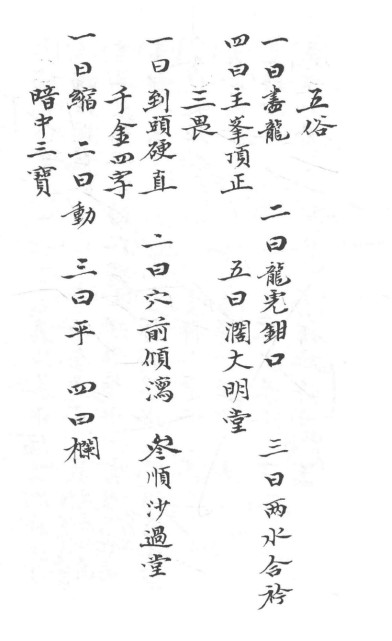 五俗
一曰盡龍　二曰龍虎鉗口　三曰两水合衿
四曰主峯頂正　五曰濶大明堂
三畏
一曰到頭硬直　二曰穴前傾瀉　叁順沙過堂
千金四字
一曰縮　二曰動　三曰平　四曰欄
暗中三寳